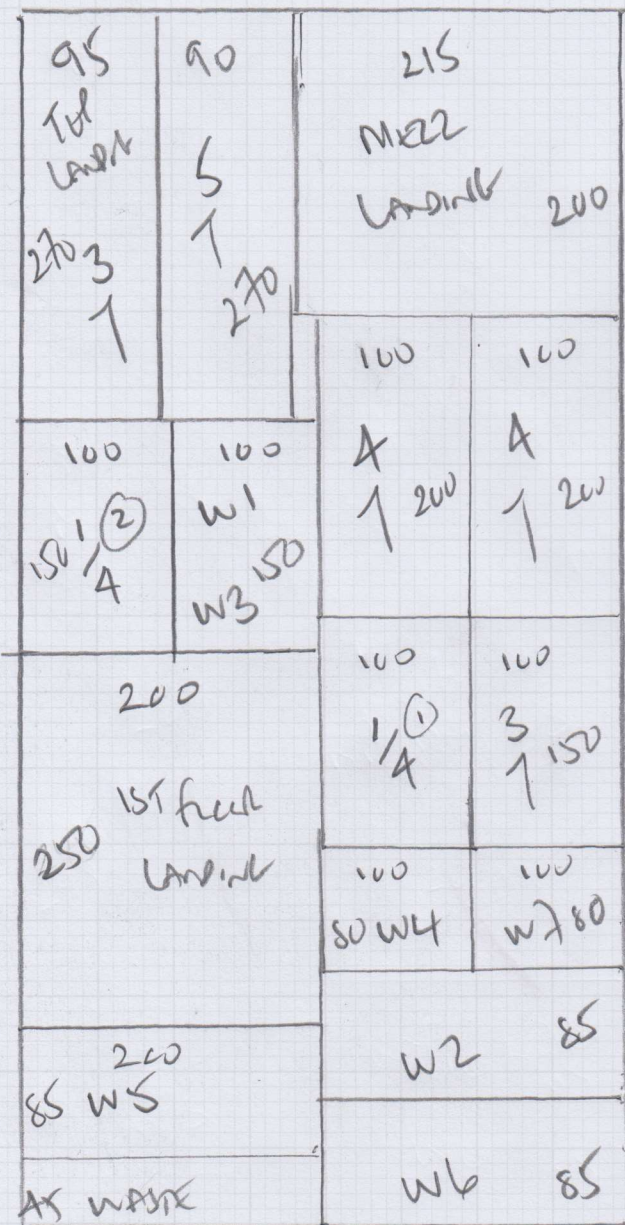 95
TOP
LANDING
270 3
1
90
5
1
270
215
MEZZ
LANDING 200
100
4
1 200
100
4
1 200
100
150 1/4 2
100
W1
150
W3
100
1/4 1
100
3
1 150
200
1ST FLOOR
250 LANDING
100
80 W4
100
W7 80
W2 85
200
85 W5
W6 85
WASTE